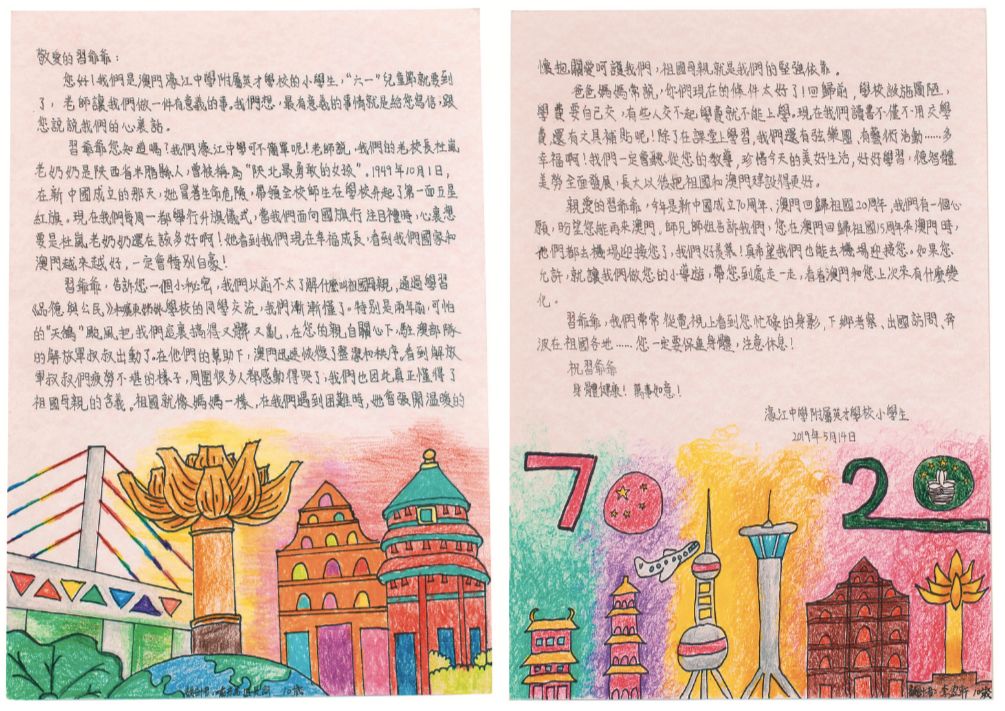 敬愛的習爺爺：
您好！我們是澳門濠江中學附屬英才學校的小學生，“六一”兒童節就要到
了，老師讓我們做一件有意義的事。我們想，最有意義的事情就是給您寫信，跟
您說說我們的心裏話。
習爺爺您知道嗎？我們濠江中學可不簡單呢！老師說，我們的老校長杜嵐
老奶奶是陝西省米脂縣人，曾被稱為“陝北最勇敢的女孩”。1949年10月1日，
在新中國成立的那天，她冒著生命危險，帶領全校師生在學校升起了第一面五星
紅旗。現在我們每周一都舉行升旗儀式，當我們面向國旗行注目禮時，心裏想
要是杜嵐老奶奶還在該多好啊！她看到我們現在幸福成長，看到我們國家和
澳門越來越好，一定會特別自豪！
習爺爺，告訴您一個小秘密，我們以前不太了解什麼叫祖國母親，通過學習
《品德與公民》學校的同學交流，我們漸漸懂了。特別是兩年前，可怕
的“天鴿”颱風把我們家裏搞得又髒又亂，在您的親自關心下，駐澳部隊
的解放軍叔叔出動了。在他們的幫助下，澳門迅速恢復了整潔和秩序。看到解放
軍叔叔們疲勞不堪的樣子，周圍很多人都感動得哭了；我們也因此真正懂得了
祖國母親的含義。祖國就像媽媽一樣，在我們遇到困難時，她會張開溫暖的
懷抱，關愛呵護我們，祖國母親就是我們的堅強依靠。
爸爸媽媽常說，你們現在的條件太好了！回歸前，學校設施簡陋，
學費要自己交，有些人交不起學費就不能上學。現在我們讀書不僅不用交學
費，還有文具補貼呢！除了在課堂上學習，我們還有弦樂團、有藝術活動……多
幸福啊！我們一定會聽從您的教導，珍惜今天的美好生活，好好學習，德智體
美勞全面發展，長大以後把祖國和澳門建設得更好。
親愛的習爺爺，今年是新中國成立70周年、澳門回歸祖國20周年，我們有一個心
願，盼望您能再來澳門，師兄師姐告訴我們，您在澳門回歸祖國15周年來澳門時，
他們都去機場迎接您了，我們好羨慕！真希望我們也能去機場迎接您。如果您
允許，就讓我們做您的小導遊，帶您到處走一走，看看澳門和您上次來有什麼變
化。
習爺爺，我們常常從電視上看到您忙碌的身影，下鄉考察、出國訪問、奔
波在祖國各地……您一定要保重身體，注意休息！
祝習爺爺
身體健康！萬事如意！
濠江中學附屬英才學校小學生
2019年5月14日
70 20
10歲
10歲